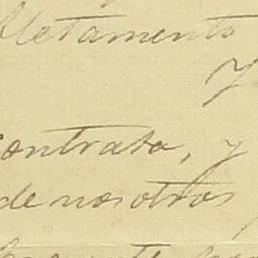 fletamento
y
contrata, y
de nosotros